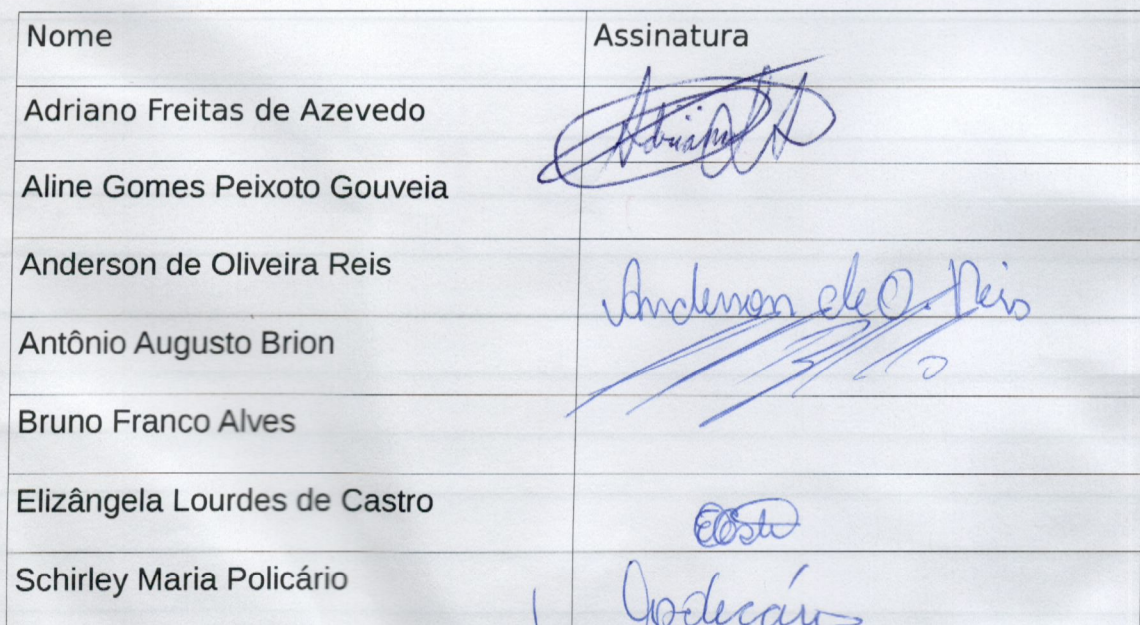 Nome Assinatura
Adriano Freitas de Azevedo Adriano
Aline Gomes Peixoto Gouveia
Anderson de Oliveira Reis Anderson de O. Reis
Antônio Augusto Brion
Bruno Franco Alves
Elizângela Lourdes de Castro
Schirley Maria Policário Policário